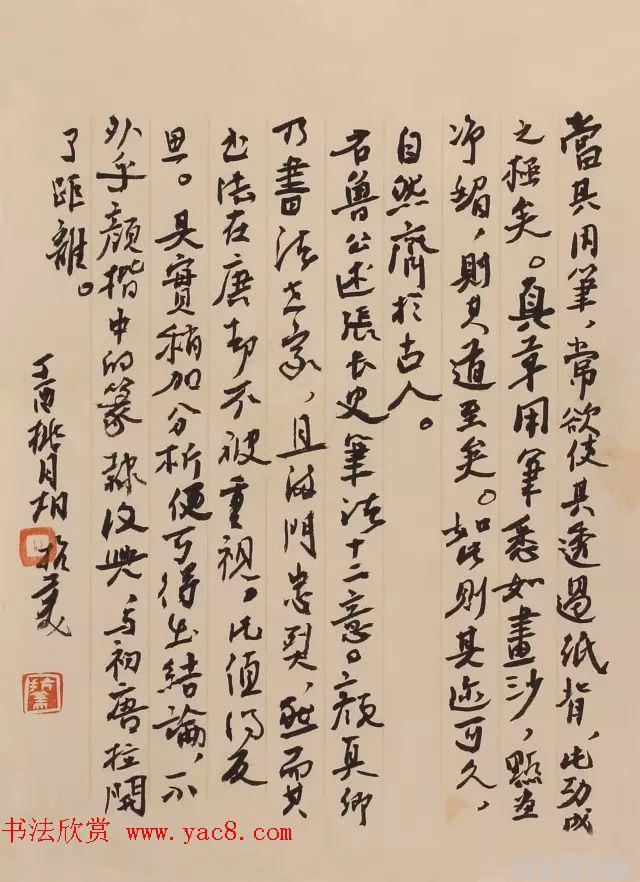 當其用筆，常欲使其透過紙背，此功成
之極矣。真草用筆悉如畫沙，點畫
净媚，則其道至矣。如此則其迹可久，
自然齊於古人。
右魯公述張長史筆法十二意。顏真卿
乃書法大家，且滿門忠烈，然而其
書法在唐却不被重視。此值得反
思。其實稍加分析便可得出結論，不
外乎顏楷中的篆隸復興，与初唐拉開
了距離。
丁酉桃月胡抗美
书法欣赏 www.yac8.com